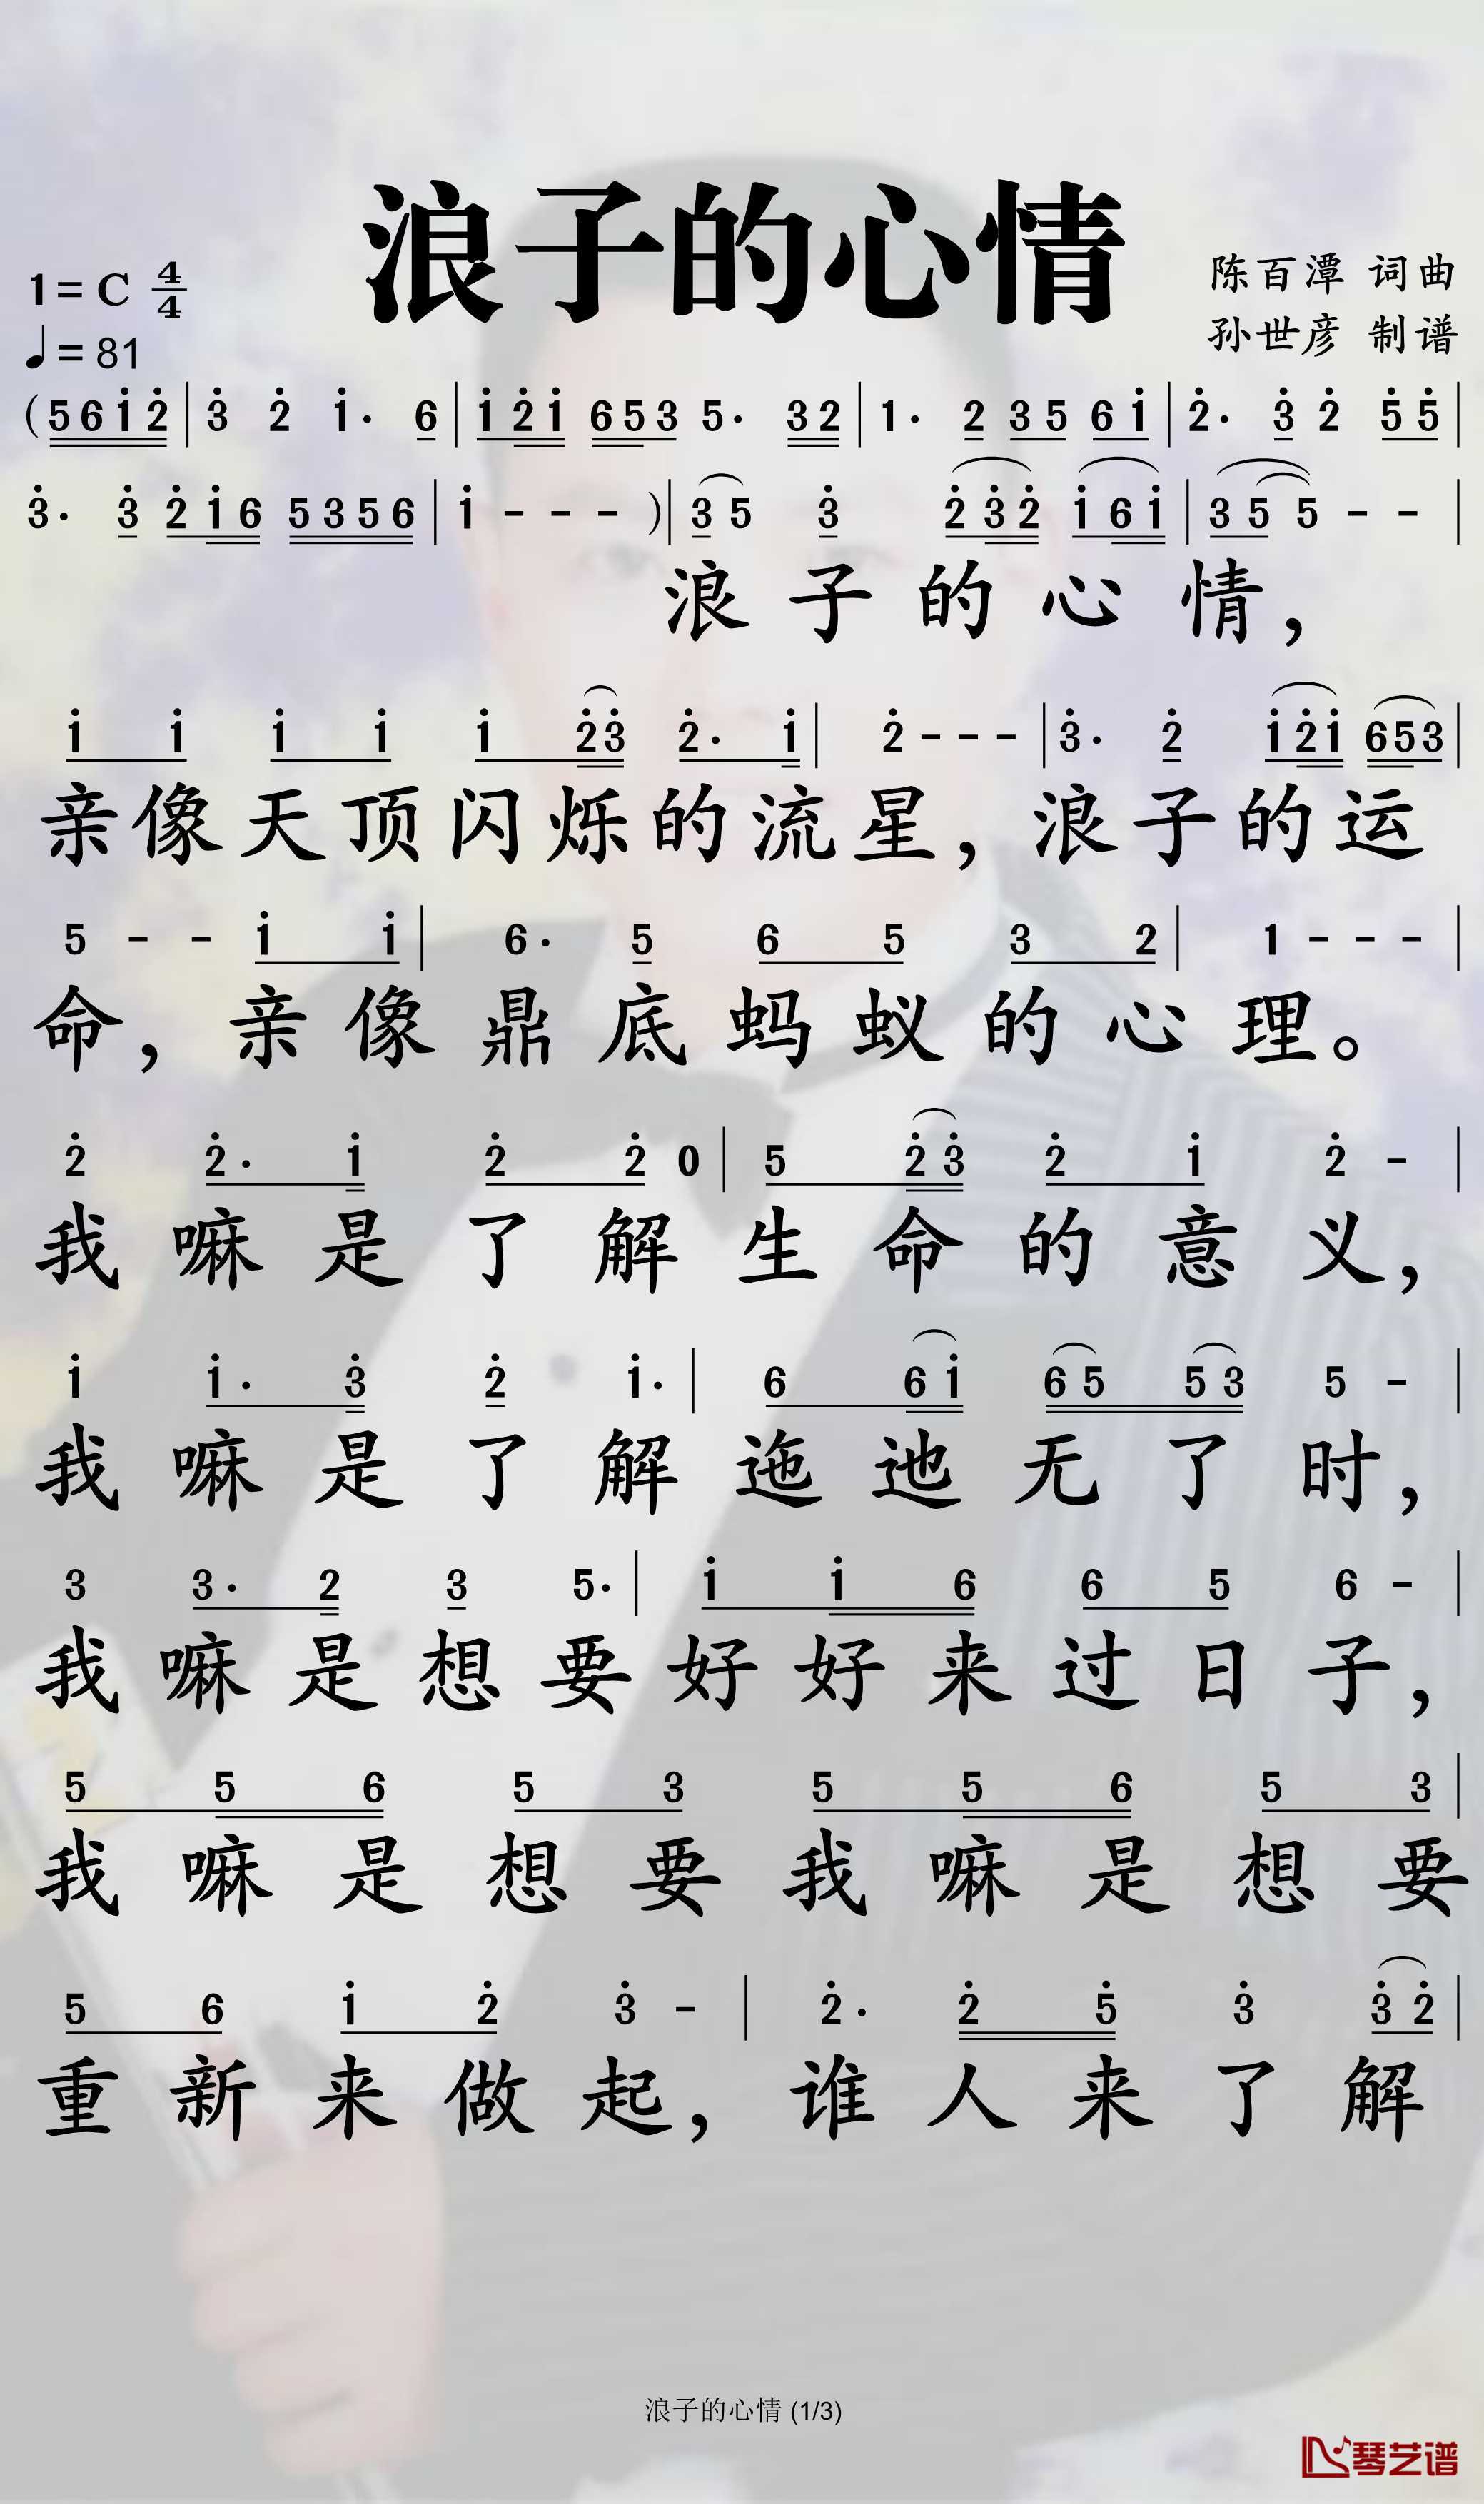 浪子的心情
1=C 4/4
♩=81
陈百潭 词曲
孙世彦 制谱
(5 6 i̇ 2̇ | 3̇ 2̇ i̇· 6 | i̇ 2̇ i̇ 6 5 3 5· 3 2 | 1· 2 3 5 6 i̇ | 2̇· 3̇ 2̇ 5̇ 5̇ |
3̇· 3̇ 2̇ i̇ 6 5 3 5 6 | i̇ - - - )| 3 5 3̇ 2̇ 3̇ 2̇ i̇ 6 i̇ | 3 5 5 - - |
浪子的心情，
i̇ i̇ i̇ i̇ i̇ 2̇ 3̇ 2̇· i̇ | 2̇ - - - | 3̇· 2̇ i̇ 2̇ i̇ 6 5 3 |
亲像天顶闪烁的流星，浪子的运
5 - - i̇ i̇ | 6· 5 6 5 3 2 | 1 - - - |
命，亲像鼎底蚂蚁的心理。
2̇ 2̇· i̇ 2̇ 2̇ 0 | 5 2̇ 3̇ 2̇ i̇ 2̇ - |
我嘛是了解生命的意义，
i̇ i̇· 3̇ 2̇ i̇· | 6 6 i̇ 6 5 5 3 5 - |
我嘛是了解迤迌无了时，
3 3· 2 3 5· | i̇ i̇ 6 6 5 6 - |
我嘛是想要好好来过日子，
5 5 6 5 3 5 5 6 5 3 |
我嘛是想要我嘛是想要
5 6 i̇ 2̇ 3̇ - | 2̇· 2̇ 5̇ 3̇ 3̇ 2̇ |
重新来做起，谁人来了解
浪子的心情 (1/3)
琴艺谱